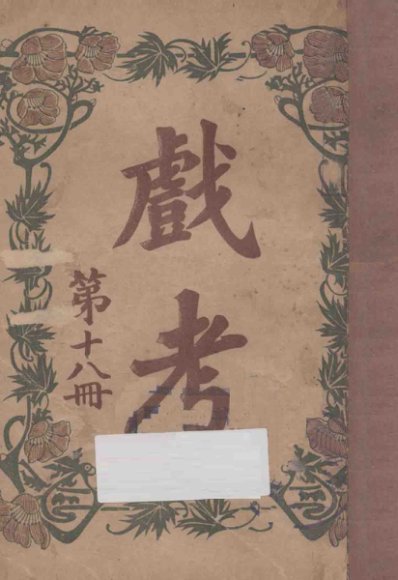 戲考
第十八冊